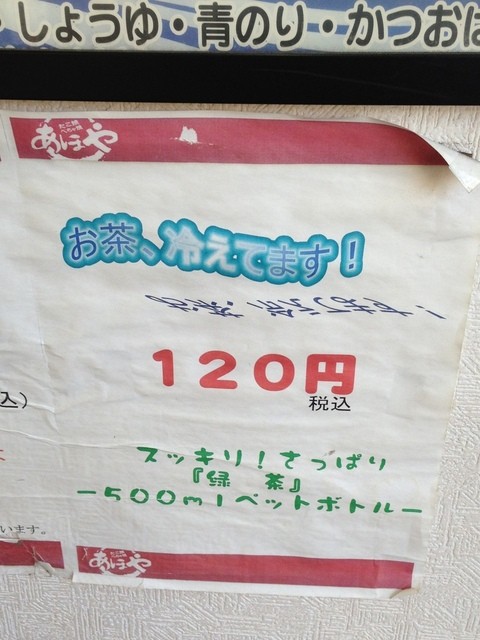 ・しょうゆ・青のり・かつおは
たこ焼
べちゃ焼
あほや
お茶、冷えてます！
120円
税込
込）
スッキリ！さっぱり
『緑 茶』
ー500mlペットボトルー
います。
たこ焼
べちゃ焼
あほや